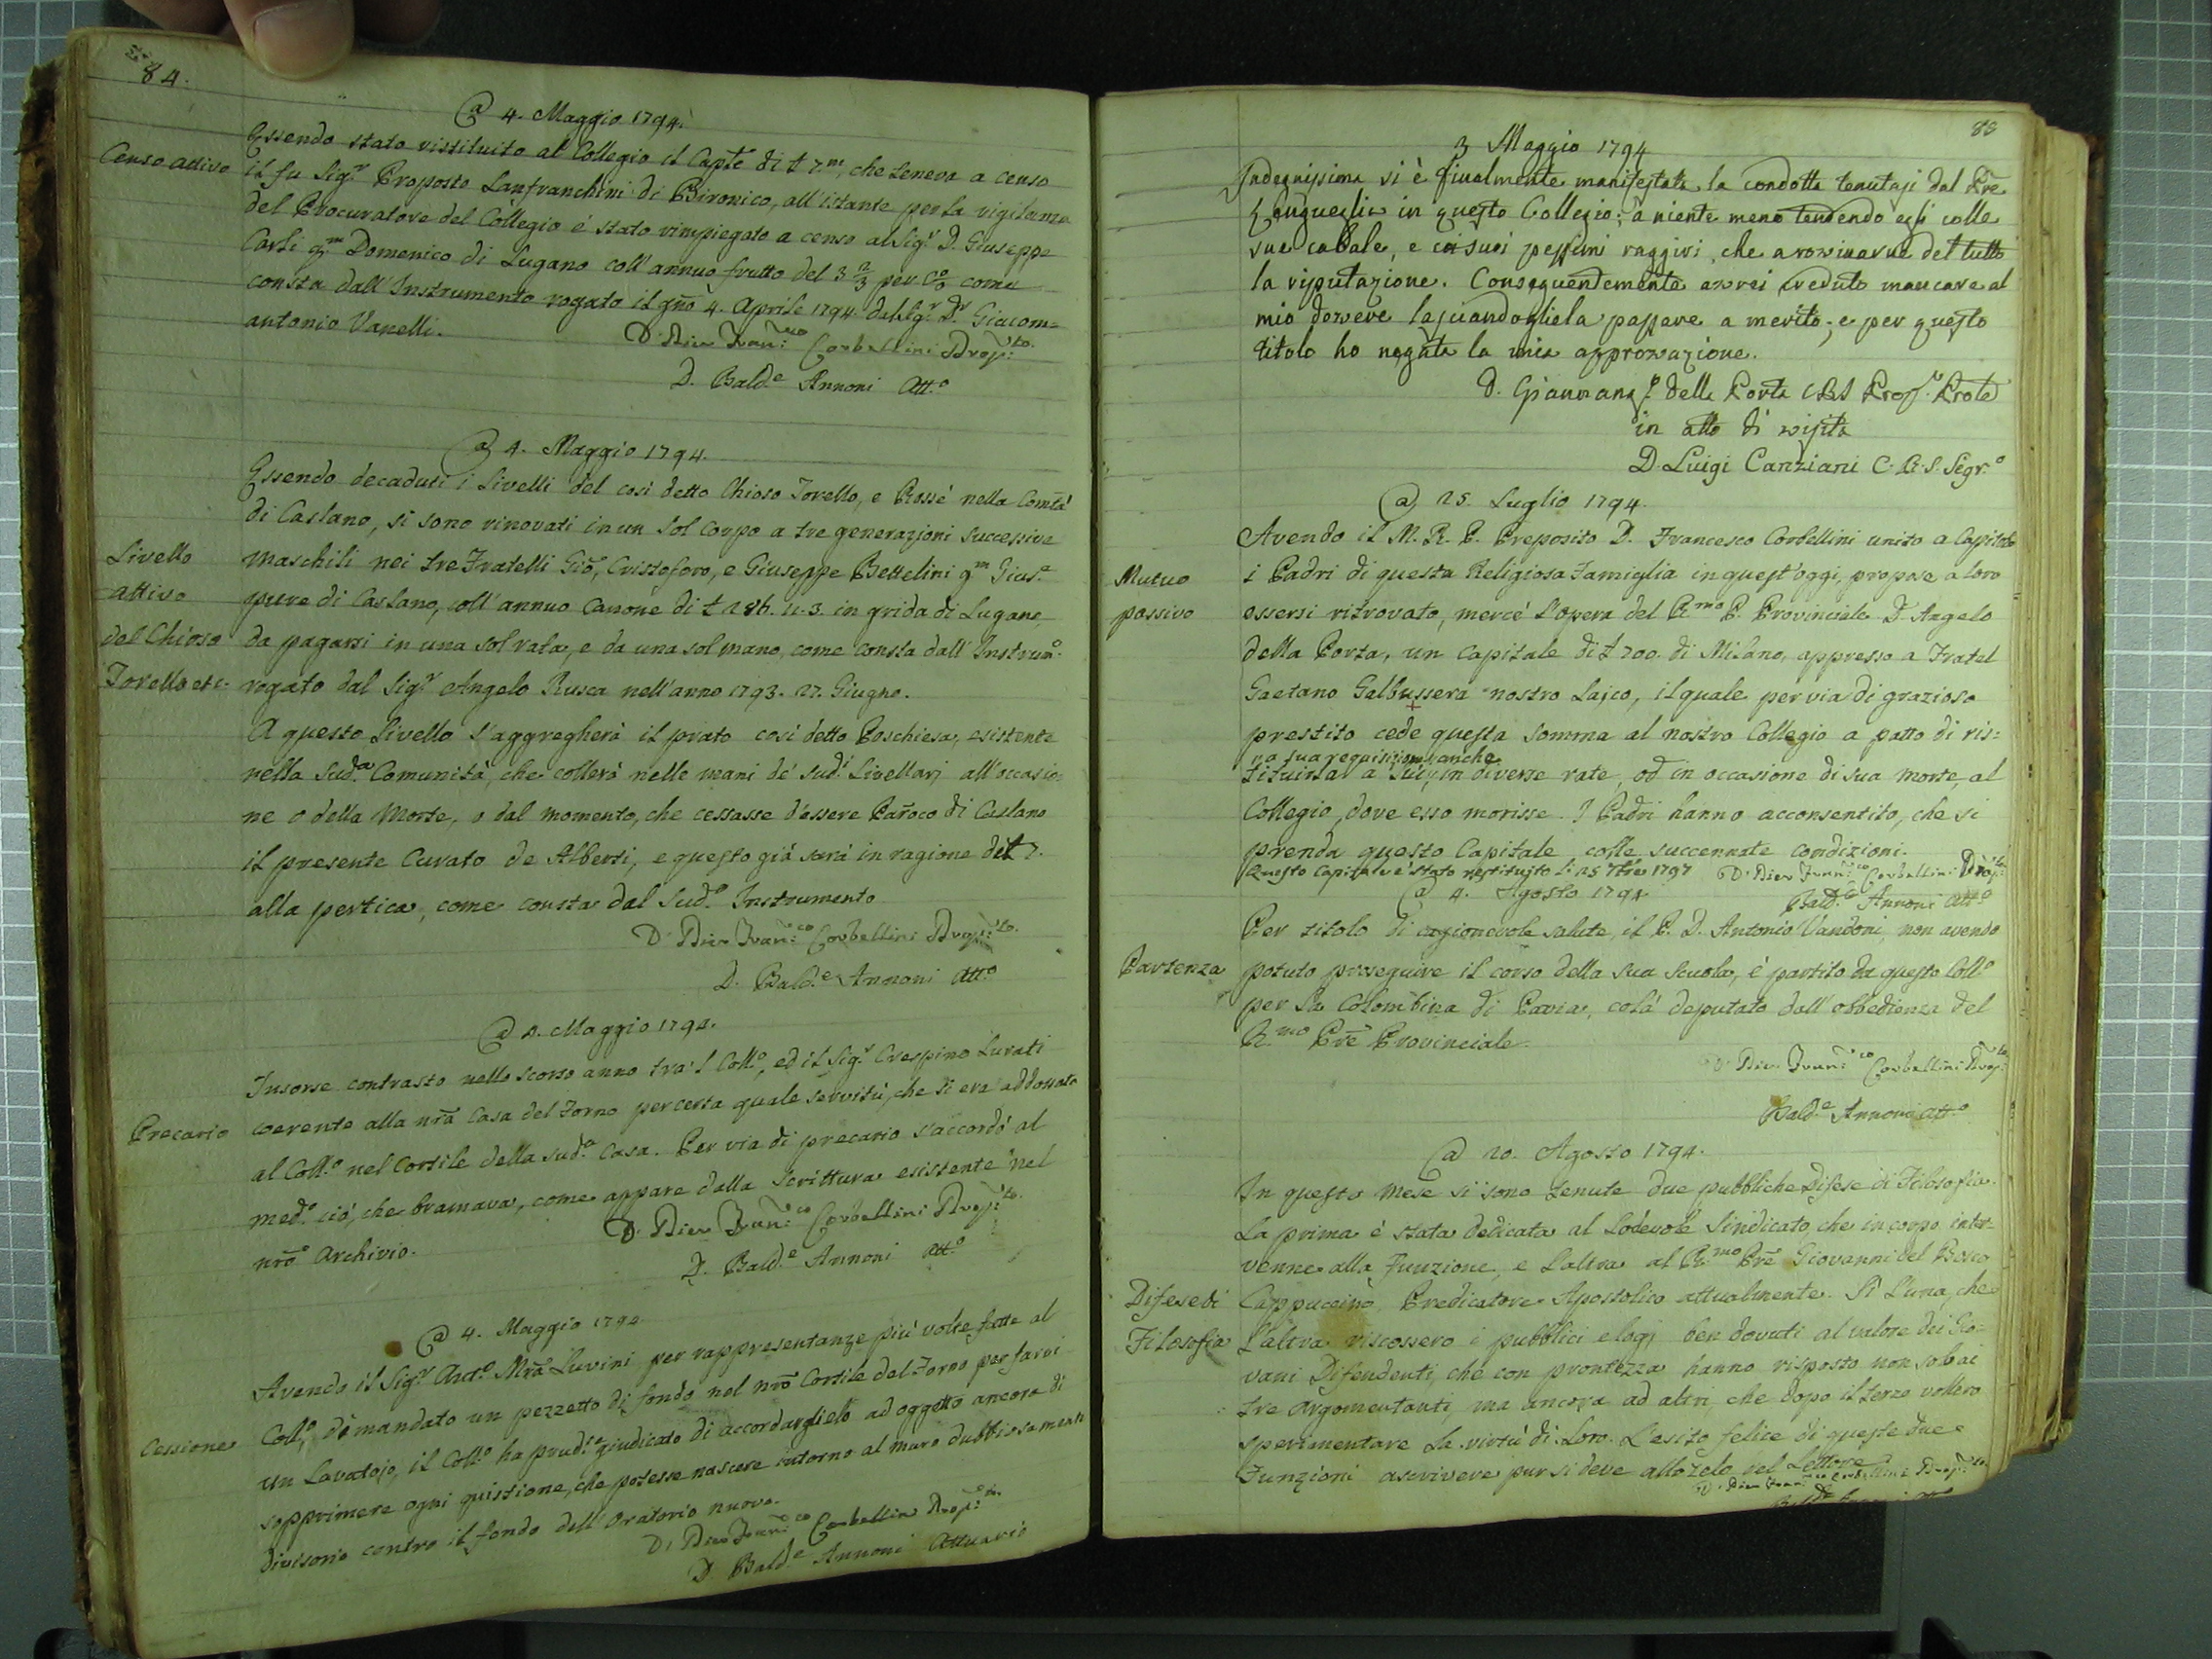 84.
@ 4. Maggio 1794.
Essendo stato ristituito al Collegio il Caple di £ 7.m, che teneva a censo
Censo attivo
il fu Sig.r Proposto Lanfranchini di Bironico, all'istante per la vigilanza
del Procuratore del Collegio é stato rimpiegato a censo al Sig.r D. Giuseppe
Carli qm Domenico di Lugano coll'annuo frutto del 3 2/3 per C.o come
consta dall'Instrumento rogato il gno 4. Aprile 1794 dal Sig.r D.r Giacom=
antonio Vanelli.
D. Pier Fran:co Corbellini Prep:to
D. Bald.e Annoni Att.o
@ 4. Maggio 1794.
Essendo decaduti i Livelli del cosi detto Chioso Torello, e Rossé nella Comtá
di Caslano, si sono rinovati in un sol corpo a tre generazioni successive
Livello
maschili nei tre Fratelli Gio, Cristoforo, e Giuseppe Bettelini qm Gius.e
attivo
pure di Caslano, coll'annuo Canone di £ 286. 11. 3. in grida di Lugano,
del Chioso
da pagarsi in una sol rata, e da una sol mano, come consta dall'Instrum.o
Torello etc.
rogato dal Sig.r Angelo Rusca nell'anno 1793. 27. Giugno.
A questo Livello s'aggregherà il prato cosi detto Boschiesa, esistente
nella Sud.a Comunità, che collerà nelle mani de' sud.i Livellarj all'occasio=
ne o della Morte, o dal momento, che cessasse d'essere Paroco di Caslano
il presente Curato de Alberti, e questo già sarà in ragione di £ 7.
alla pertica, come consta dal Sud.o Instrumento
D. Pier Fran:co Corbellini Prep:to
D. Bald.e Annoni Att.o
@ 4. Maggio 1794.
Insorse contrasto nello scorso anno tra'l Coll.o, ed il Sig.r Crespino Lurati
Precario
coerente alla nrā Casa del Forno per certa quale servitù, che si era addossata
al Coll.o nel Cortile della sud.a Casa. Per via di precario s'accordò al
med.o ciò, che bramava, come appare dalla Scrittura esistente nel
nrō Archivio.
D. Pier Fran:co Corbellini Prep:to
D. Bald.e Annoni Att.o
@ 4. Maggio 1794
Avendo il Sig.r Ant.o Mrā Luvini per rappresentanze più volte fatte al
Cessione
Coll.o, dimandato un pezzetto di fondo nel nrō Cortile del Forno per farvi
un Lavatojo, il Coll.o ha prud.te giudicato di accordarglielo ad oggetto ancora di
sopprimere ogni quistione, che potesse nascere intorno al muro dubbiosamente
divisorio contro il fondo dell'Oratorio nuovo.
D. Pier Fran:co Corbellini Prep:to
D. Bald.e Annoni Attuario
85
3 Maggio 1794
Indegnissima si è finalmente manifestata la condotta tenutasi dal Pre
in questo Collegio; a niente meno tendendo egli colle
sue cabale, e coi suoi pessimi raggiri, che a rovinarne del tutto
la riputazione. Conseguentemente avrei creduto mancare al
mio dovere lasciandogliela passare a merito; e per questo
titolo ho negata la mia approvazione.
D. della Porta CRS Prole
in atto di visita
D. Luigi Canziani C. R. S. Segr.o
@ 25. Luglio 1794.
Avendo il M. R. P. Preposito D. Francesco Corbellini unito a Capitolo
Mutuo
i Padri di questa Religiosa Famiglia in quest'oggi, propose a loro
passivo
essersi ritrovato, mercé l'opera del R.mo P. Provinciale D. Angelo
della Porta, un Capitale di £ 700. di Milano, appresso a Fratel
Gaetano Galbussera nostro Laico, il quale per via di grazioso
prestito cede questa somma al nostro Collegio a patto di ris=
a sua requisizione anche
tituirla a Lui, in diverse rate, od in occasione di sua morte, al
Collegio, dove esso morisse. I Padri hanno acconsentito, che si
prenda questo Capitale colle succennate condizioni.
Questo Capitale é stato restituito li 25 7bre 1797
D. Pier Fran:co Corbellini Prep:to
@ 4. Agosto 1794
Bald.e Annoni Att.o
Per titolo di cagionevole salute, il P. D. Antonio Vandoni, non avendo
Partenza
potuto proseguire il corso della sua Scuola, è partito da questo Coll.o
per la Colombina di Pavia, colà deputato dall'obbedienza del
R.mo Prē Provinciale.
D. Pier Fran:co Corbellini Prep:to
Bald.e Annoni Att.o
@ 20. Agosto 1794.
In questo Mese si sono tenute due pubbliche Difese di Filosofia.
La prima è stata dedicata al Lodevole Sindicato, che in corpo inter=
venne alla Funzione, e l'altra al R.mo Prē Giovanni del Bosco
Difese di
Cappuccino, Predicatore Apostolico attualmente. Sì l'una, che
Filosofia
l'altra riscossero i pubblici elogj ben dovuti al valore dei Gio=
vani Difendenti, che con prontezza hanno risposto non solo ai
tre argomentanti, ma ancora ad altri, che dopo il terzo vollero
sperimentare la virtù di Loro. L'esito felice di queste due
Funzioni ascrivere pur si deve allo zelo del Lettore.
D. Pier Fran:co Corbellini Prep:to